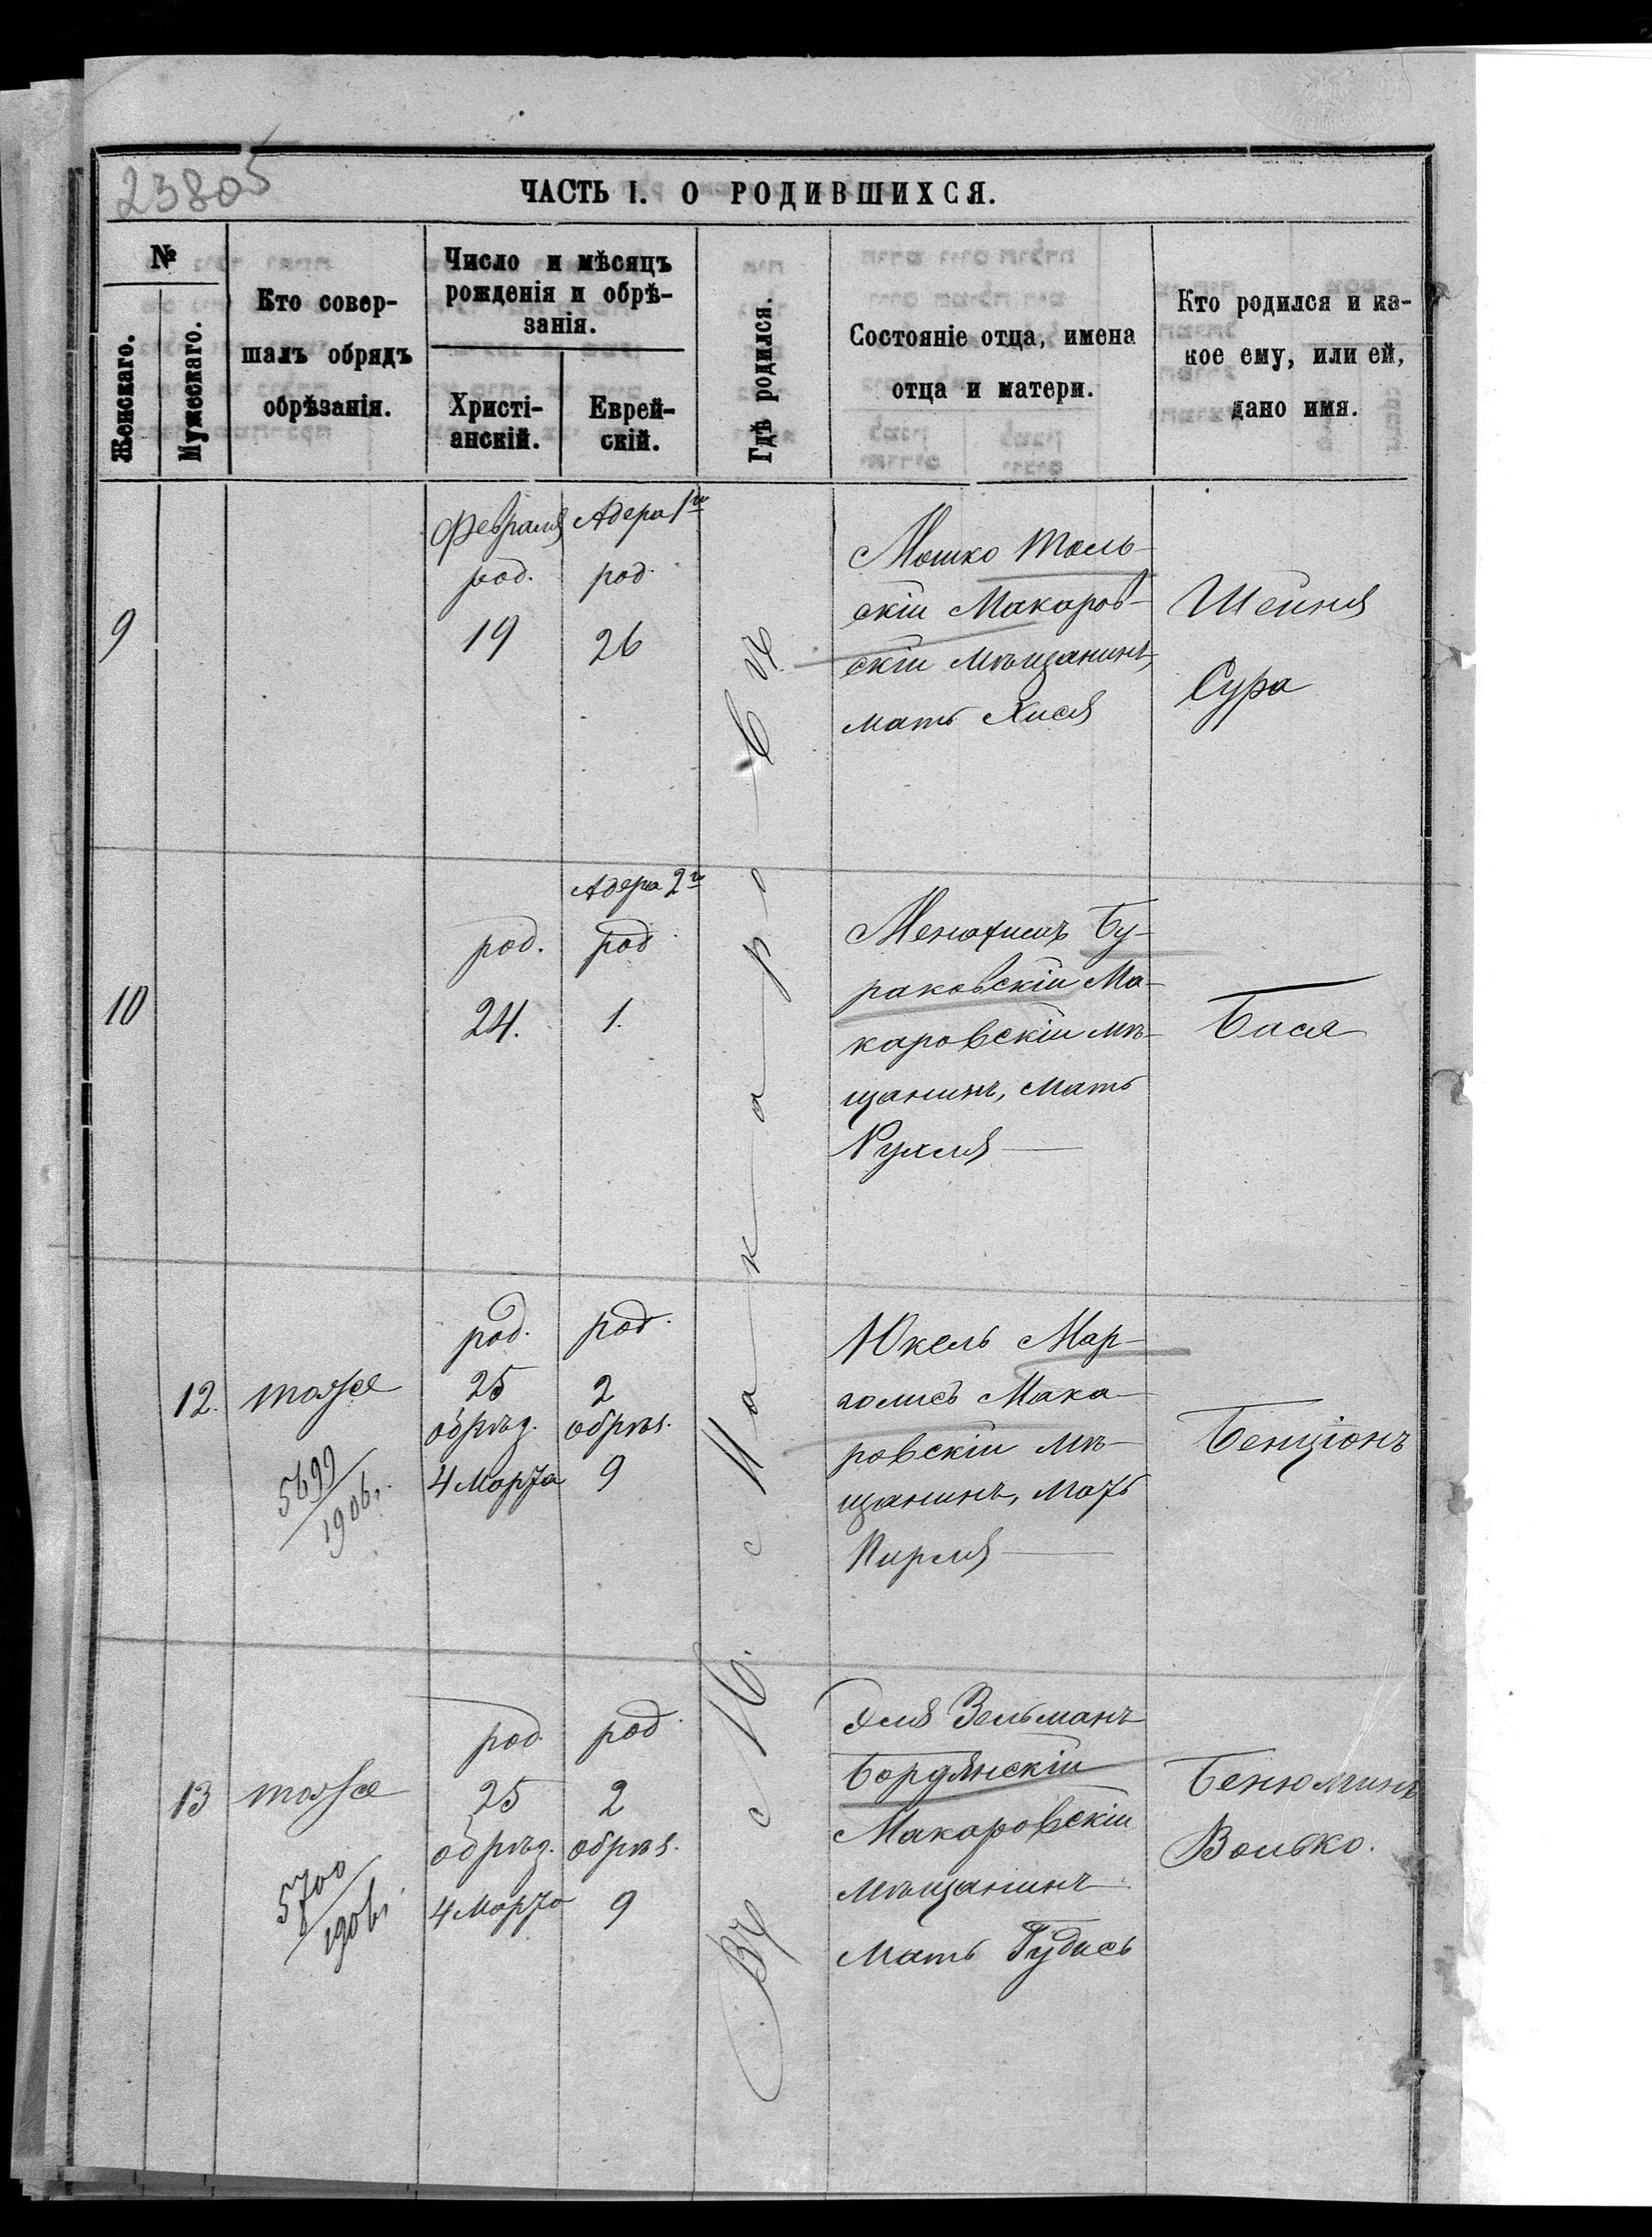 23805
ЧАСТЬ I. О РОДИВШИХСЯ.
№
Женскаго.
Мужескаго.
Кто совер-
шалъ обрядъ
обрѣзанія.
Число и мѣсяцъ
рожденія и обрѣ-
занія.
Христі-
анскій.
Еврей-
скій.
Гдѣ родился.
Состояніе отца, имена
отца и матери.
Кто родился и ка-
кое ему, или ей,
дано имя.
Въ м. с Макаровъ
9
Февраля
род.
19
Адера 1го
род.
26
Мошко Таль-
скій Макаров-
скій мѣщанинъ,
мать Хися
Шейня
Сура
10
род.
24.
Адера 2го
род.
1.
Менахимъ Бу-
раковскій Ма-
каровскій мѣ-
щанинъ, мать
Рухля
Бася
12.
тоже
5699
1906.
род.
25
обрѣз.
4 Марта
род.
2
обрѣз.
9
Юкель Мар-
голисъ Мака-
ровскій мѣ-
щанинъ, мать
Пирля
Бенціонъ
13
тоже
5700
1906.
род
25
обрѣз.
4 Марта
род.
2
обрѣз.
9
Эля Зельманъ
Бордянскій
Макаровскій
мѣщанинъ
мать Гудись
Бенюминъ
Волько.